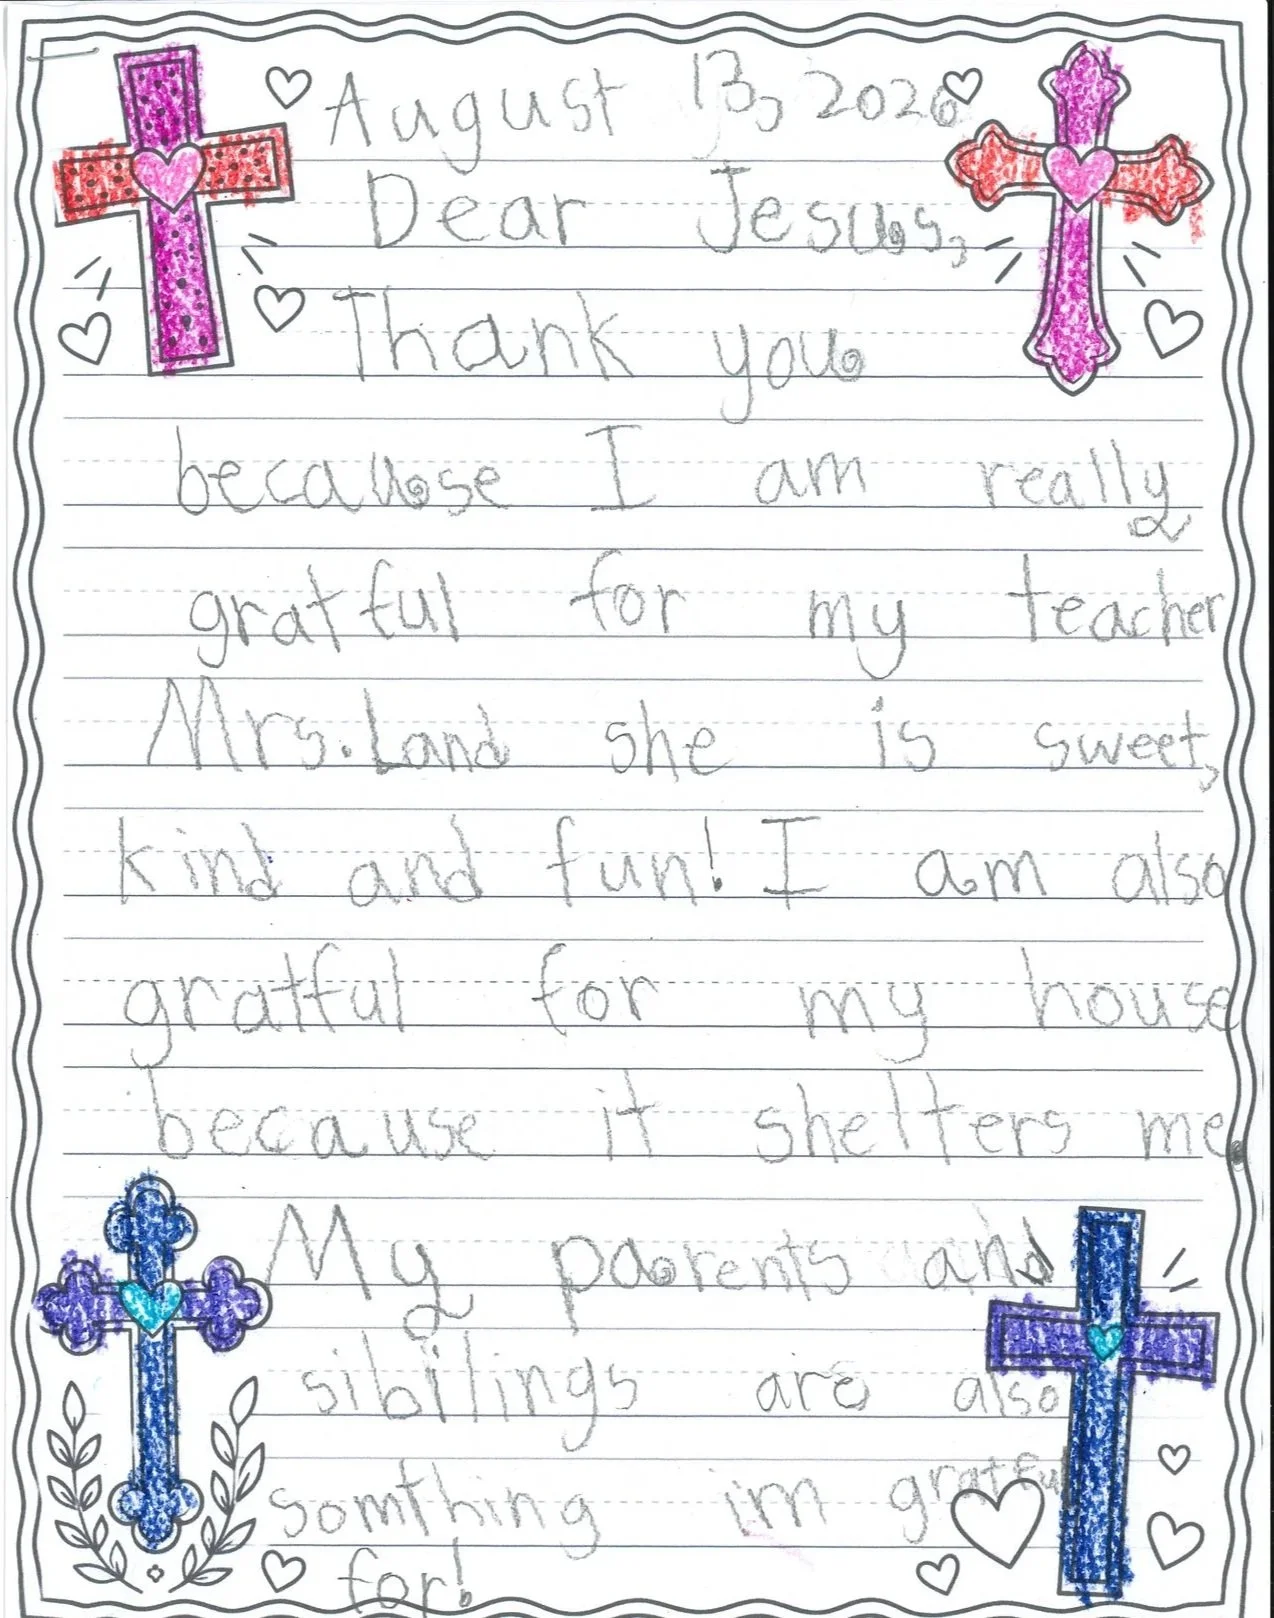 August 13, 2026
Dear Jesus,
Thank you
because I am really
gratful for my teacher
Mrs. Land she is sweet,
kind and fun! I am also
gratful for my house
because it shelters me.
My parents and
sibilings are also
somthing im gratful
for!